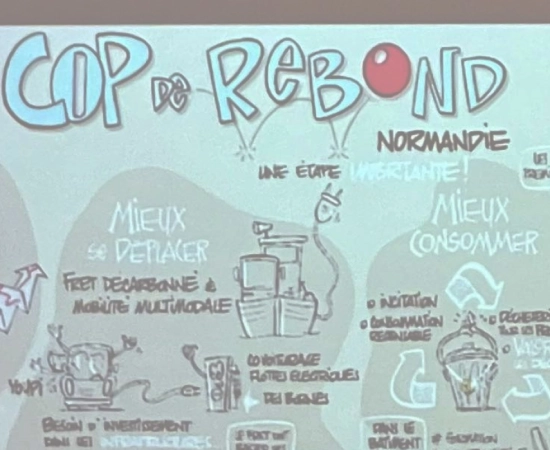 COP DE REBOND
NORMANDIE
UNE ÉTAPE IMPORTANTE!
MIEUX
SE DÉPLACER
FRET DÉCARBONNÉ &
MOBILITÉ MULTIMODALE
YOUPI
COVOITURAGE
FLOTTES ÉLECTRIQUES
DES BORNES
BESOIN D'INVESTISSEMENT
DANS LES INFRASTRUCTURES
MIEUX
CONSOMMER
INCITATION
CONSOMMATION
RESPONSABLE
DANS LE
BÂTIMENT